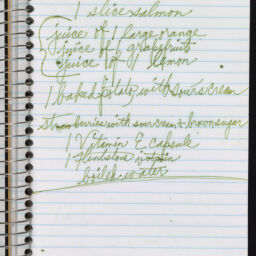 1 slice salmon
juice of 1 large orange
juice of 6 grapefruits
juice of 1 lemon
1 baked potato with sour cream
strawberries with sour cream + brown sugar
1 Vitamin E capsule
1 Flintstone vitamin
boiled water